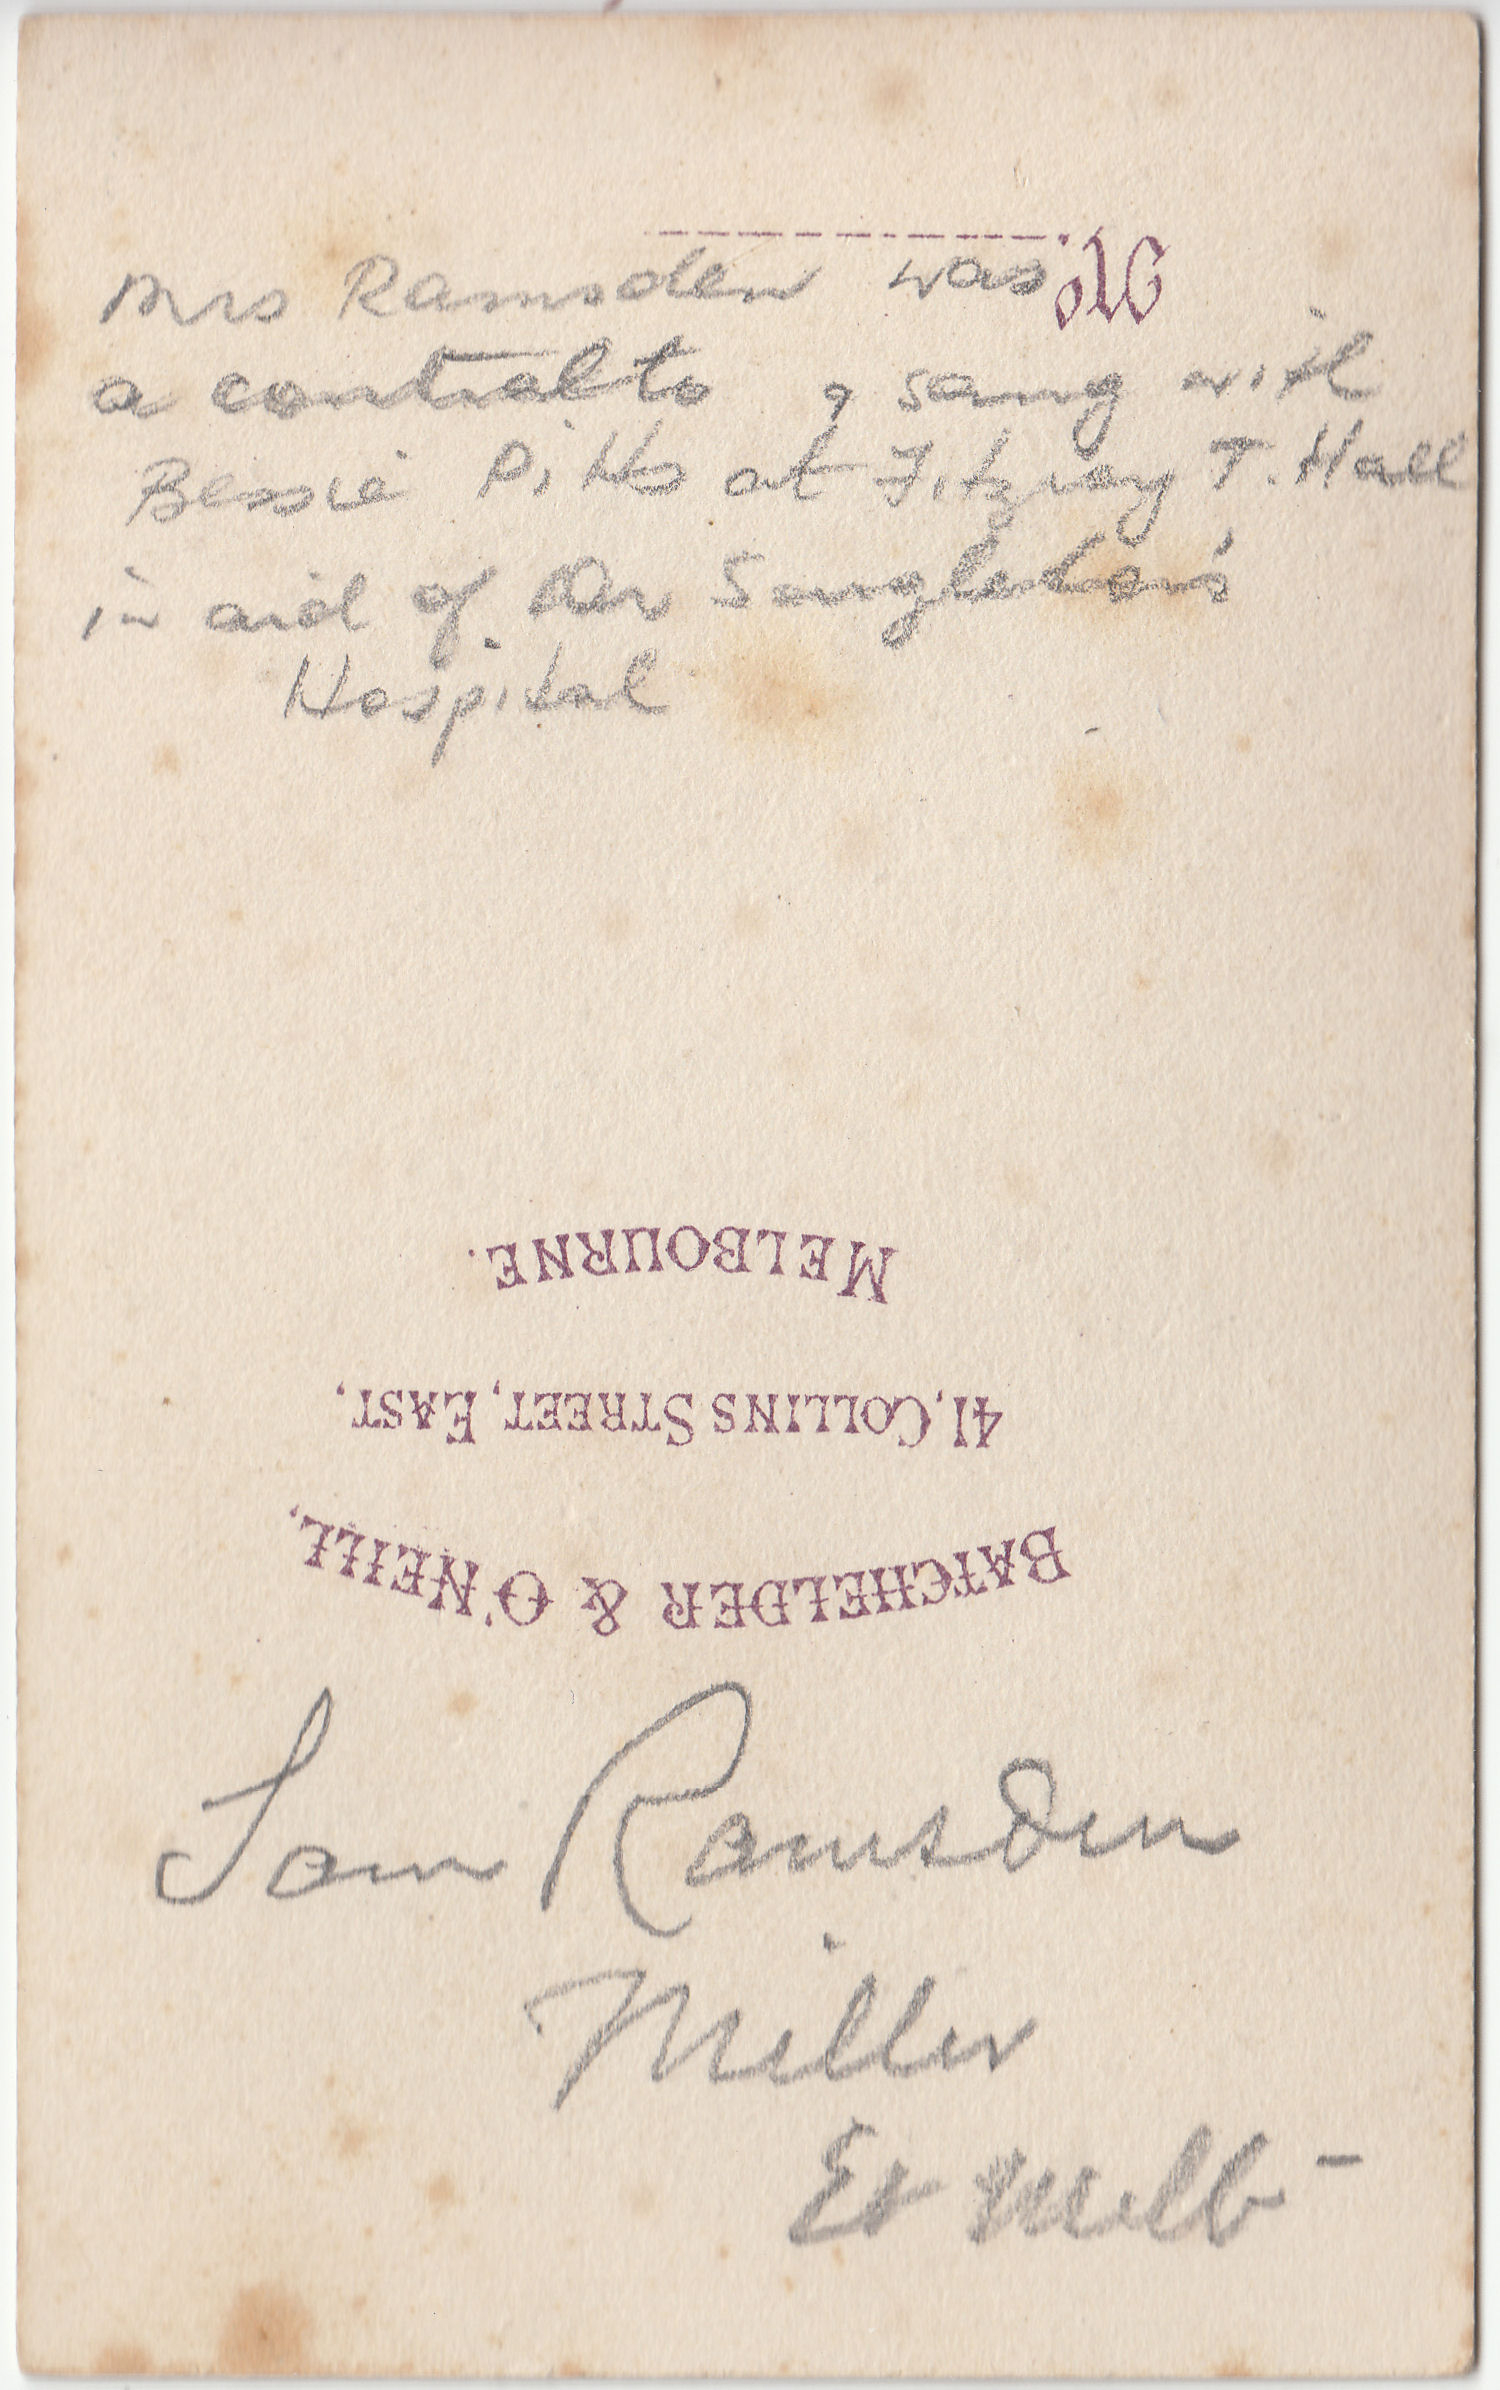 Mrs Ramsden was
a contralto & sang with
Bessie Pitts at Fitzroy T. Hall
in aid of Dr Singleton's
Hospital
No.
MELBOURNE.
41, COLLINS STREET, EAST,
BATCHELDER & O'NEILL,
Sam Ramsden
Miller
Ex Melb -